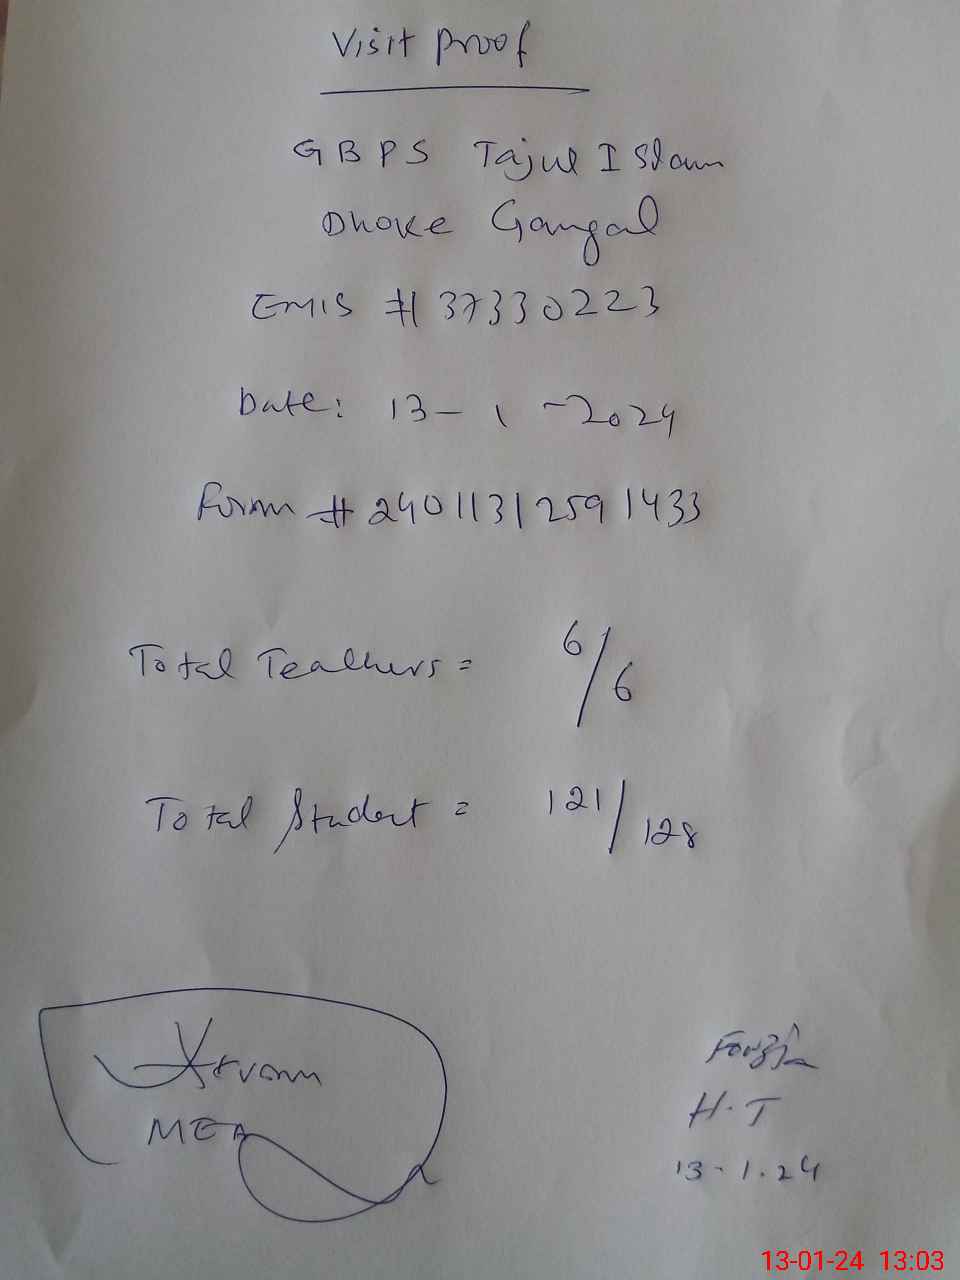 Visit Proof
GBPS Tajul Islam
Dhoke Gangal
EMIS # 37330223
Date: 13-1-2024
Form # 24011312591433
Total Teachers = 6/6
Total Student = 121/128
MEA
Fouzia
H.T
13-1.24
13-01-24 13:03